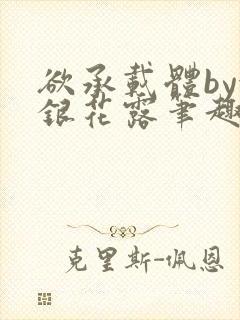 欲承載體by
銀花露筆趣
克里斯-佩恩